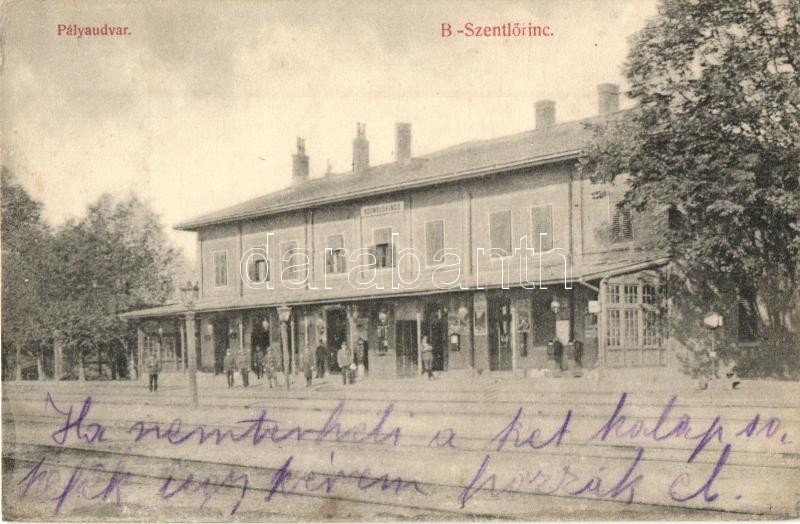 Pályaudvar.
B.-Szentlőrinc.
SZENTLŐRINCZ
darabanth
Ha nem terheli a két kalap so-
kefék úgy kérem hozzák el.